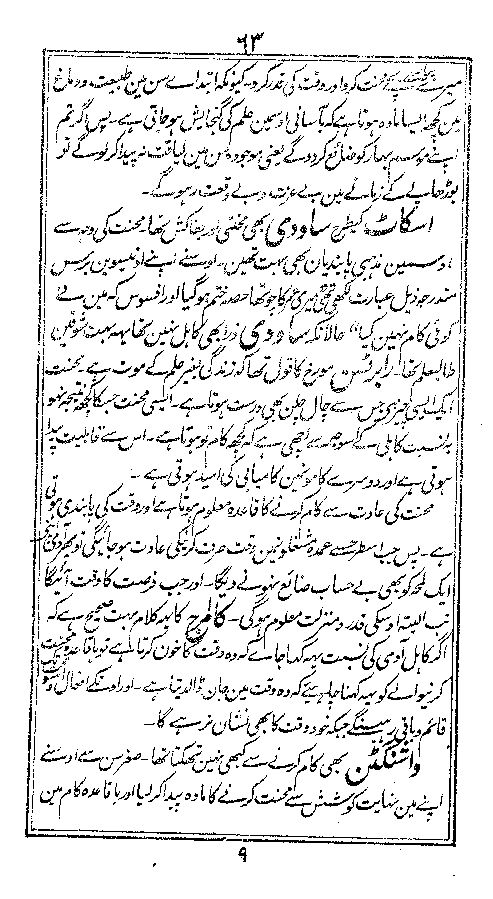 ۶۳
میرے محنت کرو اور وقت کی قدر کرو۔ کیونکہ ابتداے سن مین طبیعت و دماغ
مین کچھ ایسا مادہ ہوتا ہے کہ بآسانی اوسمین علم کی گنجایش ہوجاتی ہے۔ پس اگر تم
اپنے موسم بہار کو ضائع کردوگے یعنی موجودہ سن مین لیاقت نہ پیدا کرلوگے تو
بوڑھاپے کے زمانے مین بے عزت و بے وقعت رہوگے۔
اسکاٹ کیطرح ساودی بھی محنتی اور جفاکش تھا۔ محنت کی وجہ سے
اوسمین مذہبی پابندیان بھی بہت تھین۔ اوسنے اپنے اونیسوین برس
مندرجہ ذیل عبارت لکھی تھی "میری عمر کا چوتھا حصہ ختم ہوگیا اور افسوس کہ مین نے
کوئی کام نہین کیا" حالانکہ ساودی ذرا بھی کاہل نہین تھا یہہ بہت شوقین
طالبعلم تھا۔ رابرٹسن مورخ کا قول تھا کہ زندگی بغیر علم کے موت ہے۔ محنت
ایک ایسی چیز ہی جس سے چال چلن بھی درست ہوتا ہے۔ ایسی محنت جسکا کچھ نتیجہ نہو
بہ نسبت کاہلی کے اسوجہ سے اچھی ہے کہ کچھ کام تو ہوتا ہے۔ اس سے قابلیت پیدا
ہوتی ہے اور دوسرے کامونمین کامیابی کی امید ہوتی ہے۔
محنت کی عادت سے کام کرنے کا قاعدہ معلوم ہوتا ہے اور وقت کی پابندی ہوتی
ہے۔ پس جب اسطرحسے عمدہ مشغلونمین وقت صرف کرنیکی عادت ہوجائیگی تو پھر آدمی
ایک لمحہ کو بھی بے حساب ضائع نہونے دیگا۔ اور جب فرصت کا وقت آئیگا
تب البتہ اوسکی قدر و منزلت معلوم ہوگی۔ کالرج کا یہہ کلام بہت صحیح ہے کہ
اگر کاہل آدمی کی نسبت یہہ کہا جاے کہ وہ وقت کا خون کرتا ہے تو باقاعدہ محنت
کرنیوالے کو یہہ کہنا چاہیے کہ وہ وقت مین جان ڈالدیتا ہے۔ اور اوسکے افعال اوسوقت تک
قائم و باقی رہینگے جبکہ خود وقت کا بھی نشان نہ رہے گا۔
واشنگٹن بھی کام کرنے سے کبھی نہین تھکتا تھا۔ صغر سن سے اوسنے
اپنے مین نہایت کوشش سے محنت کرنے کا مادہ پیدا کرلیا اور باقاعدہ کام مین
۹